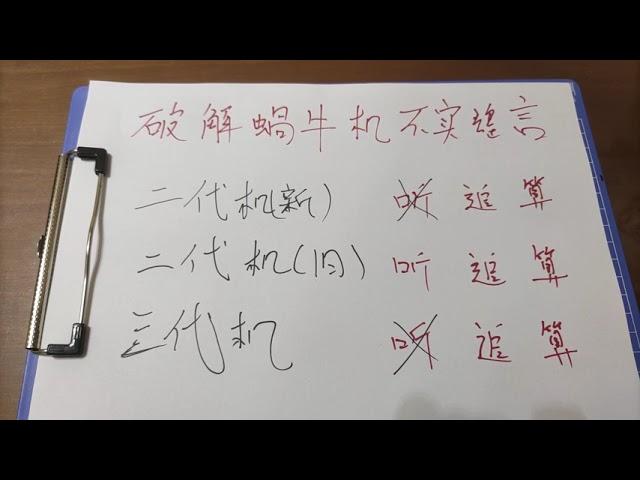 破解蜗牛机不实谣言
二代机(新) 听 追 算
二代机(旧) 听 追 算
三代机 听 追 算